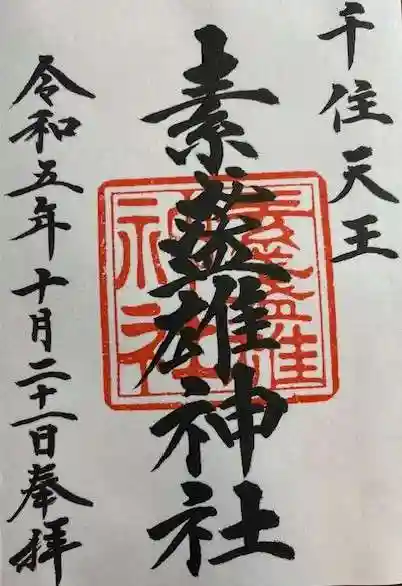 千住天王
素盞雄神社
令和五年十月二十一日奉拝
素盞雄
神社